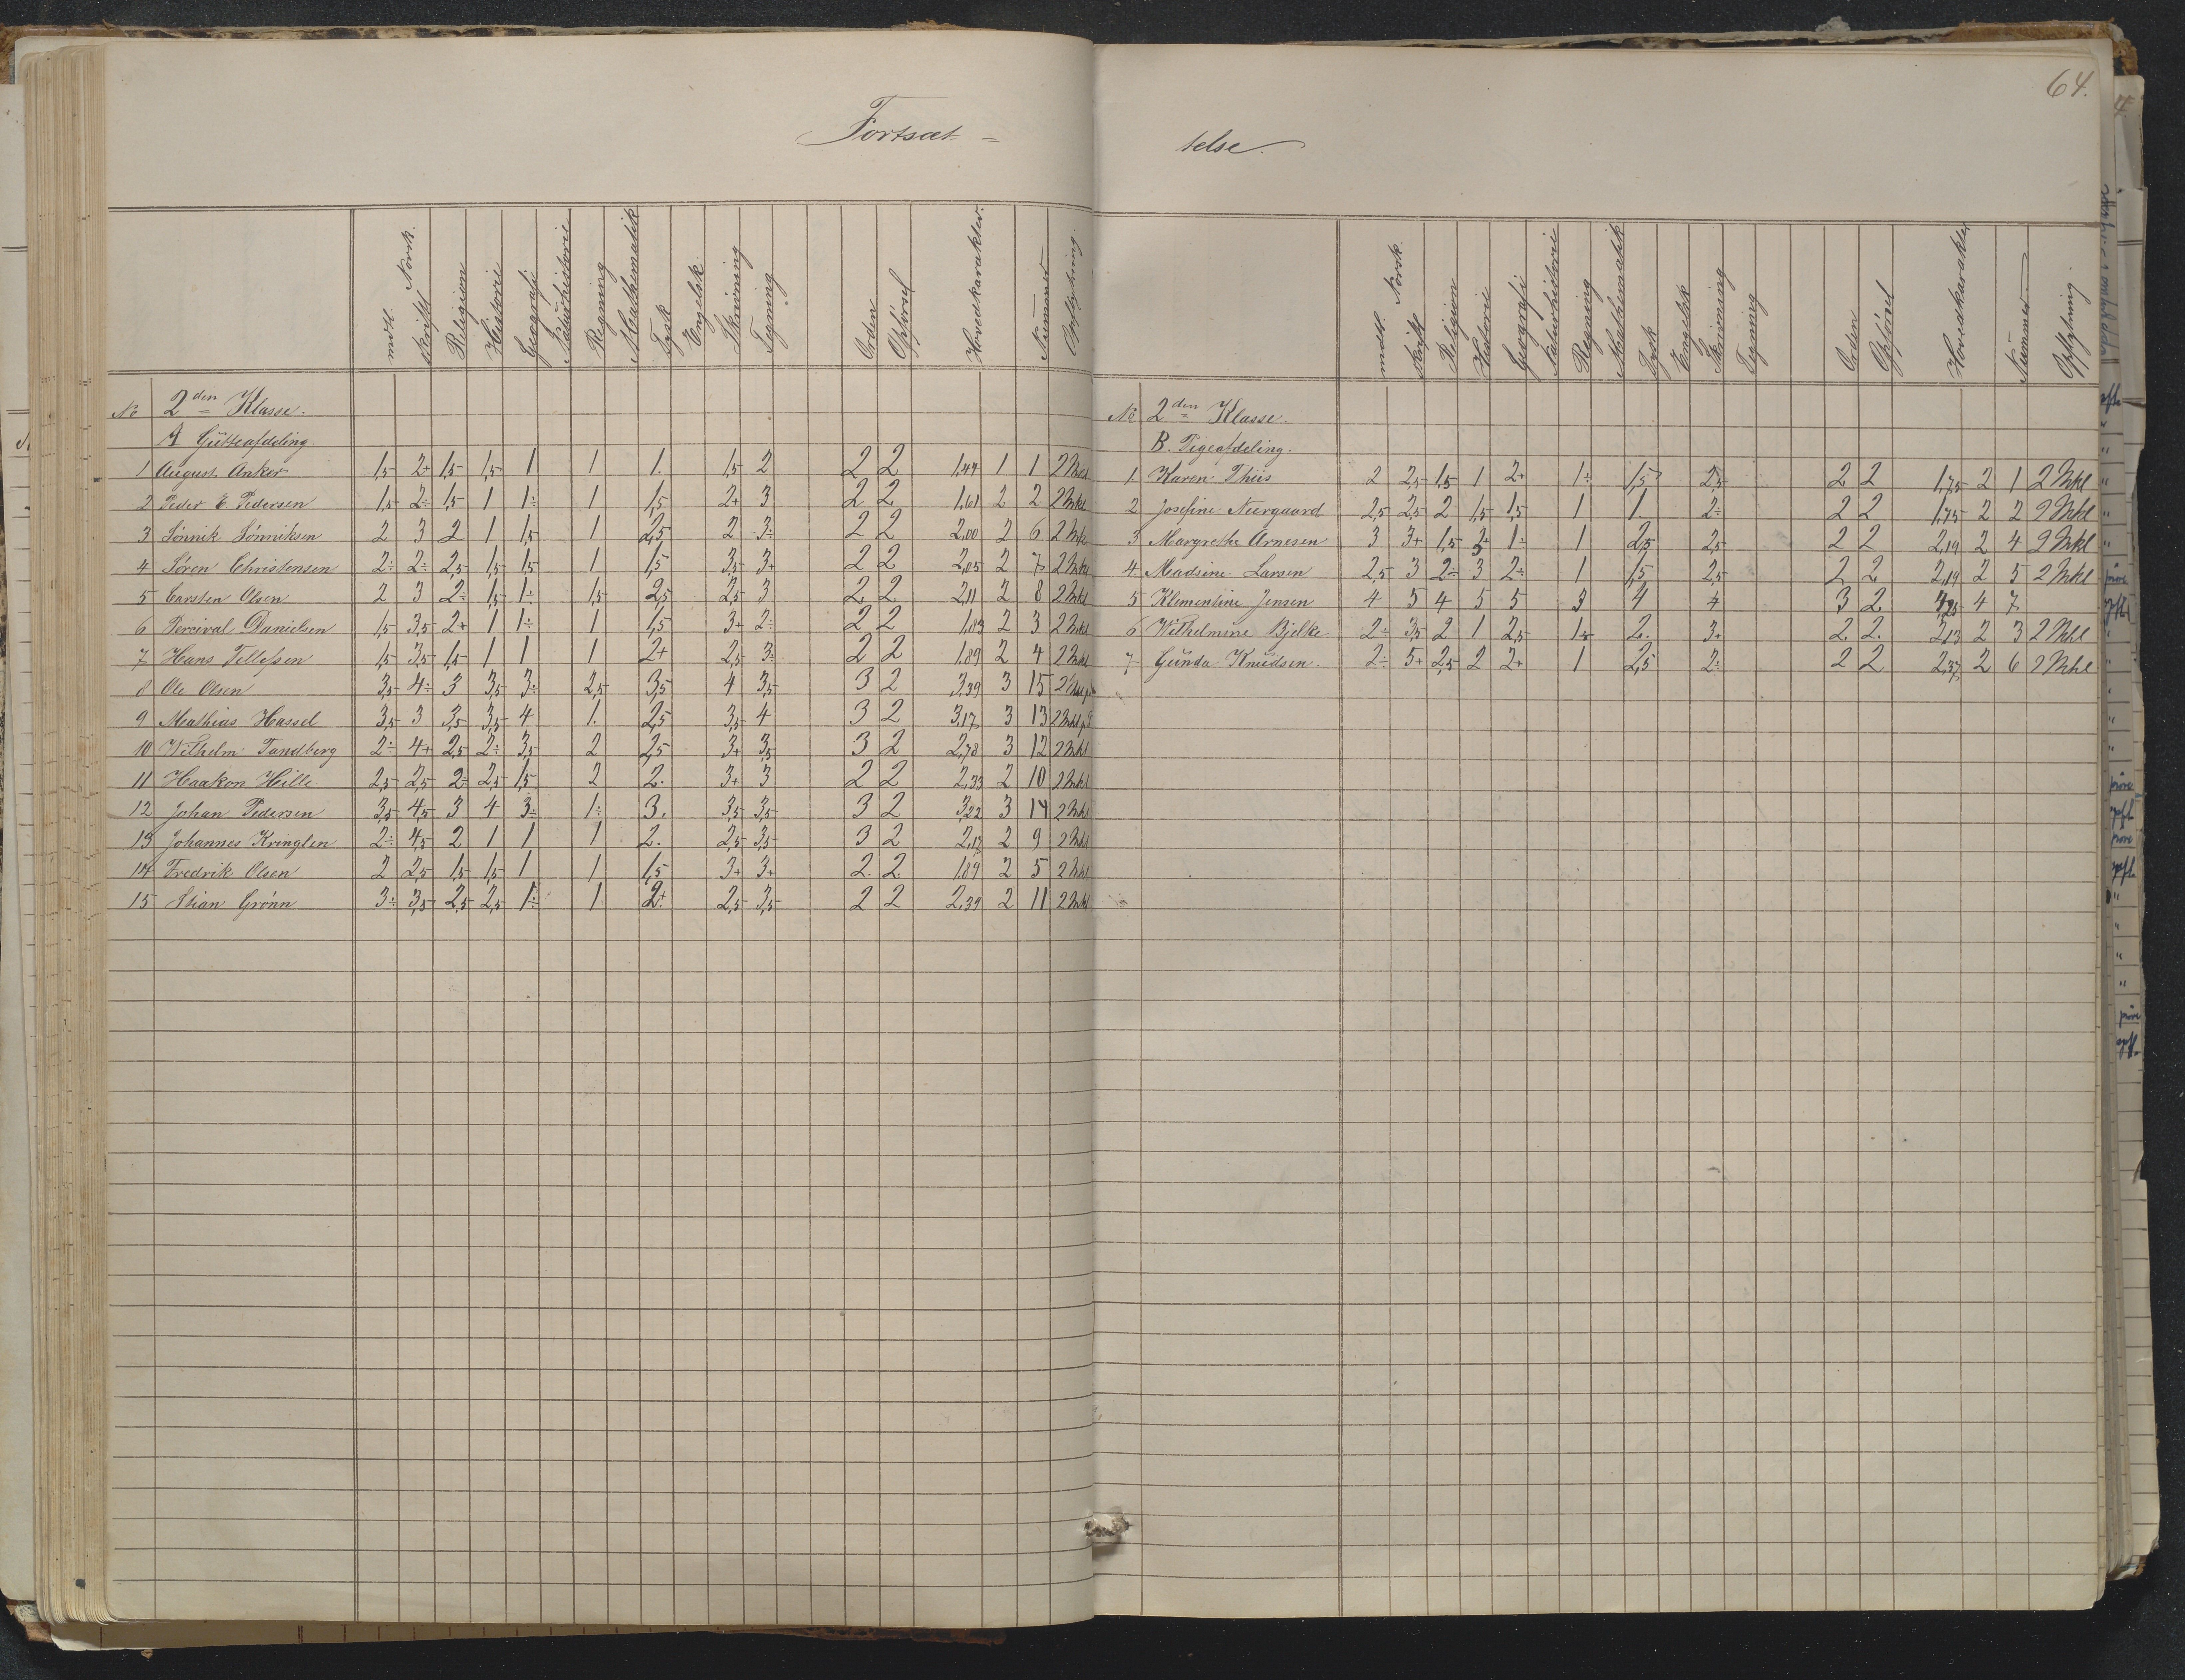 64.
Fortsæt =
telse.
mdtl. skriftl. Norsk. Religion Historie Geografi Naturhistorie Regning Mathematik Tysk Engelsk Skrivning Tegning. Orden Opførsel Hovedkarakter. Nummer Opflytning.
No 2den Klasse.
A Gutteafdeling.
1 August Anker 1,5 2+ 1,5 1,5 1 1 1. 1,5 2 2 2 1,44 1 1 2 Mkl
2 Peder E Pedersen 1,5 2÷ 1,5 1 1÷ 1 1,5 2+ 3 2 2 1,61 2 2 2 Mkl
3 Sønnik Sønniksen 2 3 2 1 1,5 1 2,5 2 3÷ 2 2 2,00 2 6 2 Mkl
4 Søren Christensen 2÷ 2÷ 2,5 1,5 1,5 1 1,5 3,5 3+ 2 2 2,05 2 7 2 Mkl
5 Carsten Olsen 2 3 2÷ 1,5 1÷ 1,5 2,5 2,5 3 2 2 2,11 2 8 2 Mkl
6 Percival Danielsen 1,5 3,5 2+ 1 1÷ 1 1,5 3+ 2÷ 2 2 1,83 2 3 2 Mkl
7 Hans Tellefsen 1,5 3,5 1,5 1 1 1 2+ 2,5 3÷ 2 2 1,89 2 4 2 Mkl
8 Ole Olsen 3,5 4÷ 3 3,5 3÷ 2,5 3,5 4 3,5 3 2 3,39 3 15
9 Mathias Hassel 3,5 3 3,5 3,5 4 1. 2,5 3,5 4 3 2 3,17 3 13 2 Mkl
10 Vilhelm Tandberg 2÷ 4+ 2,5 2÷ 3,5 2 2,5 3+ 3,5 3 2 2,78 3 12 2 Mkl
11 Haakon Hille 2,5 2,5 2÷ 2,5 1,5 2 2. 3+ 3 2 2 2,33 2 10 2 Mkl
12 Johan Pedersen 3,5 4,5 3 4 3÷ 1÷ 3. 3,5 3,5 3 2 3,22 3 14 2 Mkl
13 Johannes Kringlen 2÷ 4,5 2 1 1 1 2. 2,5 3,5 3 2 2,17 2 9 2 Mkl
14 Fredrik Olsen 2 2,5 1,5 1,5 1 1 1,5 3+ 3+ 2. 2. 1,89 2 5 2 Mkl
15 Stian Grønn 3÷ 3,5 2,5 2,5 1÷ 1 2+ 2,5 3,5 2 2 2,39 2 11 2 Mkl
mdtl. skriftl. Norsk. Religion Historie Geografi Naturhistorie Regning Mathematik Tysk Engelsk Skrivning Tegning Orden Opførsel Hovedkarakter Nummer Opflytning
No 2den Klasse.
B. Pigeafdeling.
1 Karen Thiis 2 2,5 1,5 1 2+ 1÷ 1,5 2,5 2 2 1,75 2 1 2 Mkl
2 Josefine Neergaard 2,5 2,5 2 1,5 1,5 1 1. 2÷ 2 2 1,75 2 2 2 Mkl
3 Margrethe Arnesen 3 3+ 1,5 3 1÷ 1 2,5 2,5 2 2 2,19 2 4 2 Mkl
4 Madsine Larsen 2,5 3 2÷ 3 2÷ 1 1,5 2,5 2 2 2,19 2 5 2 Mkl
5 Klementine Jensen 4 5 4 5 5 3 4 4 3 2 4,25 4 7
6 Vilhelmine Bjelke 2÷ 3,5 2 1 2,5 1,5 2. 3+ 2. 2. 2,13 2 3 2 Mkl
7 Gunda Knudsen. 2÷ 5+ 2,5 2 2+ 1 2,5 2÷ 2 2 2,37 2 6 2 Mkl